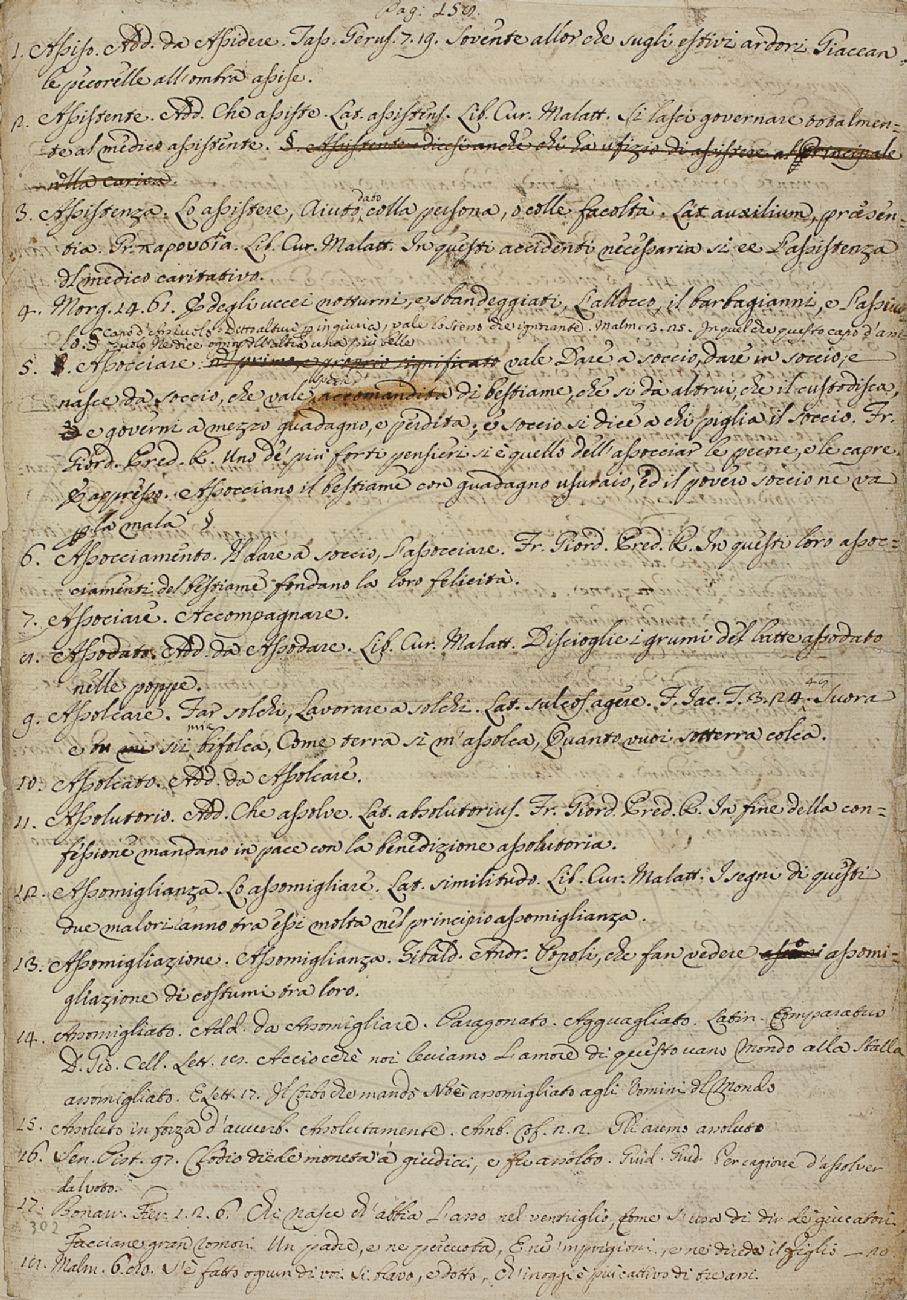 Pag. 159.
1. Assiso. Add. da Assidere. Tass. Gerus. 7. 19. Sovente allor che sugli estivi ardori Giacean
le pecorelle all'ombra assise.
2. Assistente. Add. Che assiste. Lat. assistens. Lib. Cur. Malatt. Si lasci governare totalmen=
te al medico assistente. §. Assistente dicesi anche chi ha ufizio di assistere al Principale
nella carica.
3. Assistenza. Lo assistere, Aiuto dato colla persona, o colle facoltà. Lat. auxilium, præsen=
tia. Gr. παρουσία. Lib. Cur. Malatt. In questi accidenti necessaria si ee l'assistenza
del medico caritativo.
4. Morg. 14. 61. E degli uccei notturni, e sbandeggiati, L'allocco, il barbagianni, e l'assiuo
lo. § Capo d'Assiuolo detto altrui p ingiuria, vale lo stesso che ignorante. Malm. 3. 25. In quel che questo capo d'assi
5. §. Assocciare. nel primo e proprio significato vale Dare a soccio, dare in soccio, e
nasce da soccio, che vale accomandita di bestiame, che si dà altrui, che il custodisca,
e governi a mezzo guadagno, e perdita; e soccio si dice a chi piglia il soccio. Fr.
Giord. Pred. R. Uno de' più forti pensieri si è quello dell'assocciar le pecore, e le capre.
E appresso. Assocciano il bestiame con guadagno usuraio, ed il povero soccio ne va
p la mala §
6. Assocciamento. Il dare a soccio, L'assocciare. Fr. Giord. Pred. R. In questi loro assoc=
ciamenti del bestiame fondano la loro felicità.
7. Associare. Accompagnare.
8. Assodato. Add. da Assodare. Lib. Cur. Malatt. Discioglie i grumi del latte assodato
nelle poppe.
9. Assolcare. Far solchi, Lavorare a solchi. Lat. sulcos agere. F. Iac. T. 3. 124. Suora
e tu mi sii mia bifolca, Come terra sì m'assolca, Quanto vuoi sotterra colca.
10. Assolcato. Add. da Assolcare.
11. Assolutorio. Add. Che assolve. Lat. absolutorius. Fr. Giord. Pred. R. In fine della con=
fessione mandano in pace con la benedizione assolutoria.
12. Assomiglianza. Lo assomigliare. Lat. similitudo. Lib. Cur. Malatt. I segni di questi
due malori anno tra essi molta nel principio assomiglianza.
13. Assomigliazione. Assomiglianza. Zibald. Andr. Popoli, che fan vedere assomi=
gliazione di costumi tra loro.
14. Assomigliato. Add. da Assomigliare. Paragonato. Agguagliato. Latin. Comparatus
D. Gio. Cell. Lett. 18. Acciocchè noi leviamo l'amore di questo vano Mondo alla stalla
assomigliato. E Lett. 17. Il Corbo che mandò Noè assomigliato agli Uomini del Mondo
15. Assoluto in forza d'avverb. Assolutamente. Amb. Cof. 2. 2. Gli avemo assoluto
16. Sen. Pist. 97. Clodio diede moneta a' giudici, e fu assolto. Guid. Giud. Per cagione d'assolver
dal voto.
17. Bonar. Fier. 1. 2. 6. Chi nasce ed abbia l'asso nel ventriglio, Come si usa di dir de' giucatori
302
Facciane gran romori Un padre, e ne percuota, E ne imprigioni, e ne dieda il figlio —
18. Malm. 6. S'è fatto ognun di voi sì bravo, e dotto, Ch'in oggi è più cattivo di tre assi.